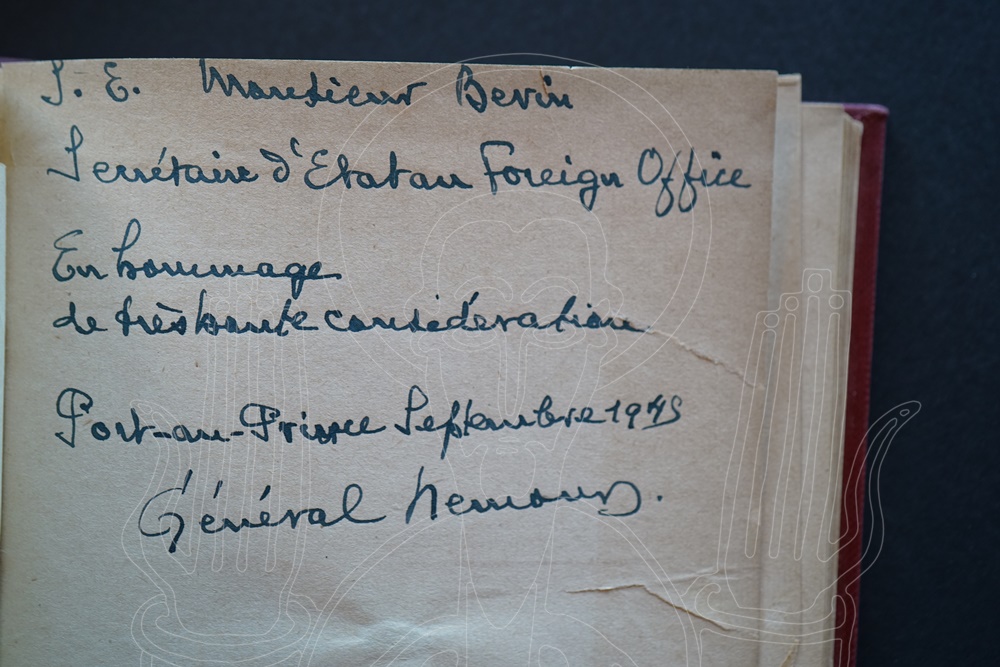 S. E. Monsieur Bevin
Secrétaire d'Etat au Foreign Office
En hommage
de très haute considération
Port-au-Prince Septembre 1945
Général Nemours.